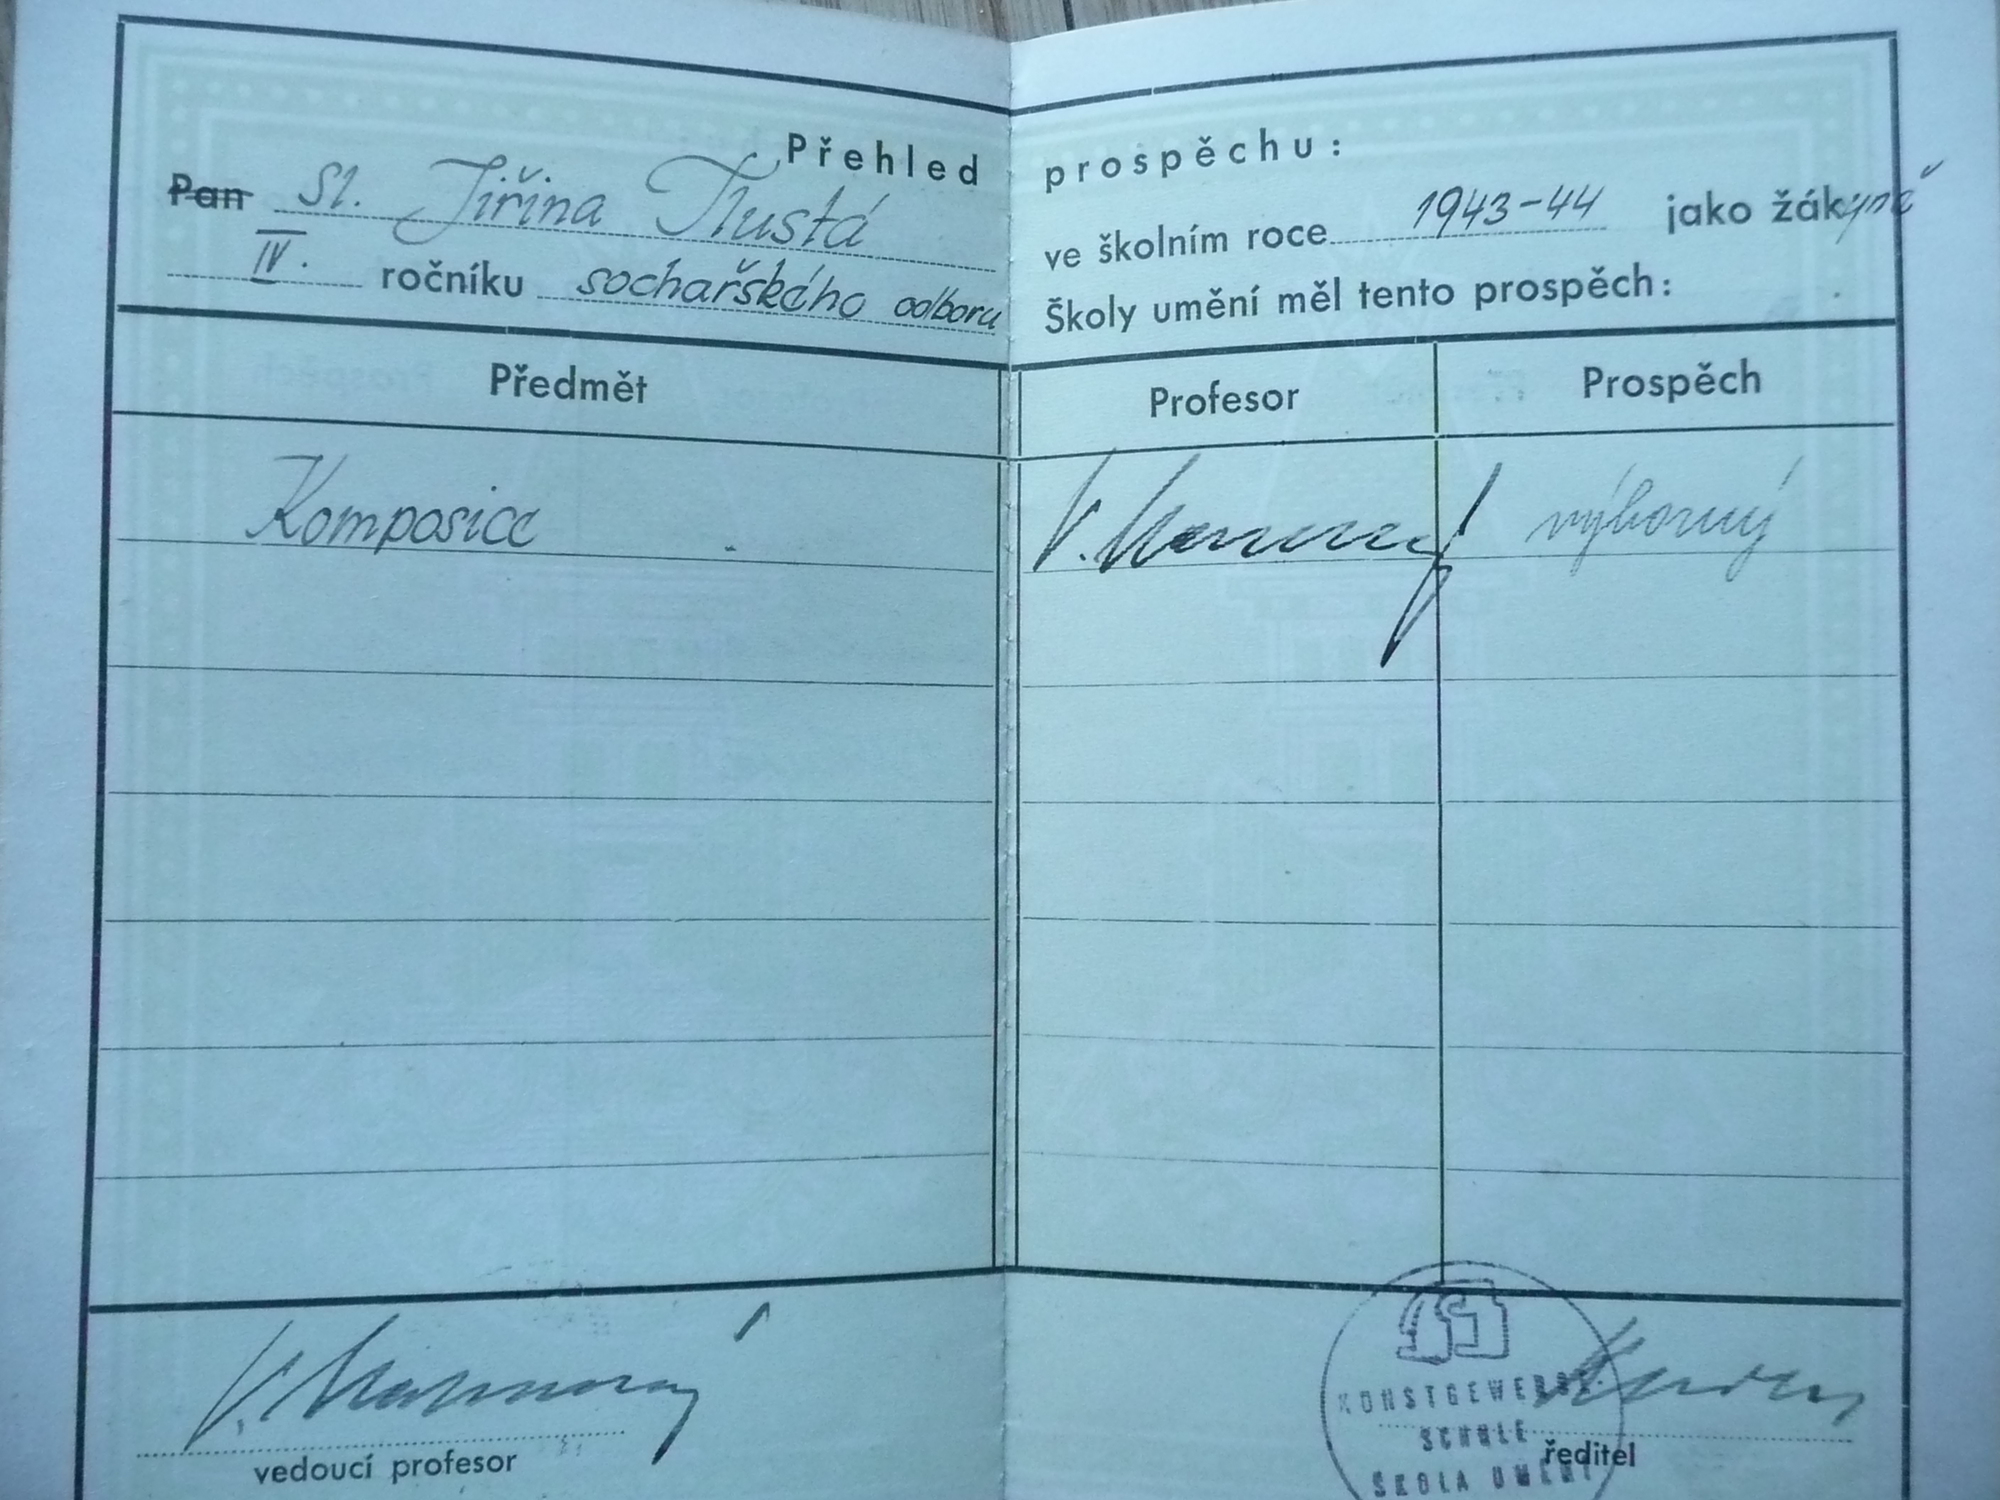 Přehled prospěchu:
Pan Sl. Jiřina Tlustá
ve školním roce 1943-44 jako žákyně
IV. ročníku sochařského odboru
Školy umění měl tento prospěch:
Předmět Profesor Prospěch
Komposice V. výborný
V.
vedoucí profesor
KUNSTGEWERBE
SCHULE
ředitel
ŠKOLA UMĚNÍ